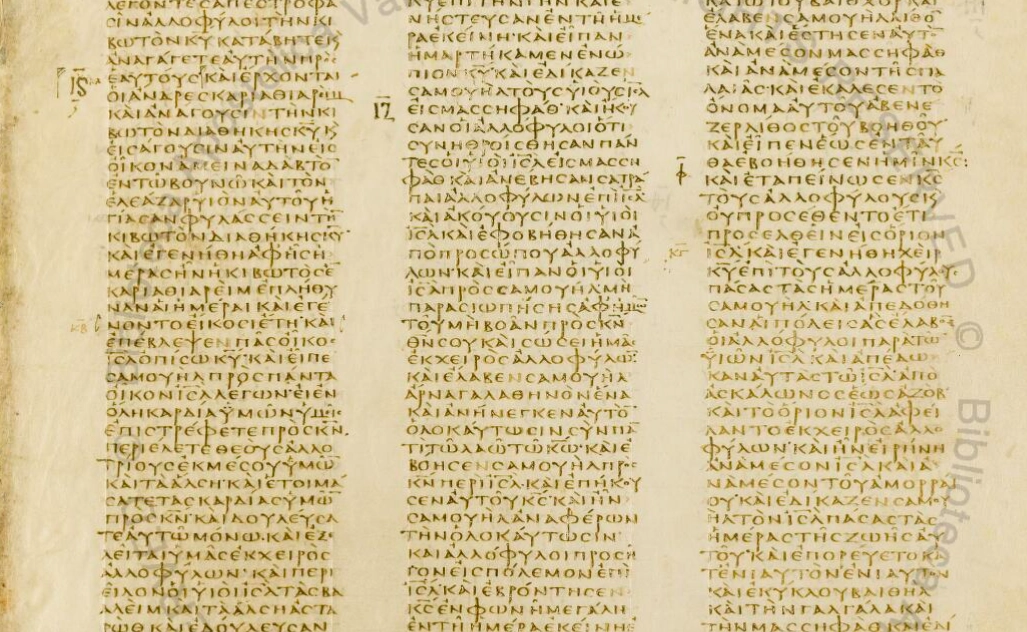 ΛΕΓΟΝΤΕΣΑΠΕΣΤΡΟΦΑ
ΣΙΝΑΛΛΟΦΥΛΟΙΤΗΝΚΙ
ΒΩΤΟΝΚΥΚΑΤΑΒΗΤΕΚ
ΑΝΑΓΑΓΕΤΕΑΥΤΗΝΠΡΟΣ
ΕΑΥΤΟΥΣΚΑΙΕΡΧΟΝΤΑΙ
ΟΙΑΝΔΡΕΣΚΑΡΙΑΘΙΑΡΕΙΜ
ΚΑΙΑΝΑΓΟΥΣΙΝΤΗΝΚΙ
ΒΩΤΟΝΔΙΑΘΗΚΗΣΚΥΚ
ΕΙΣΑΓΟΥΣΙΝΑΥΤΗΝΕΙΣ
ΟΙΚΟΝΑΜΕΙΝΑΔΑΒΤΟ
ΕΝΤΩΒΟΥΝΩΚΑΙΤΟΝ
ΕΛΕΑΖΑΡΥΙΟΝΑΥΤΟΥΗ
ΓΙΑΣΑΝΦΥΛΑΣΣΕΙΝΤΗ
ΚΙΒΩΤΟΝΔΙΑΘΗΚΗΣΚΥ
ΚΑΙΕΓΕΝΗΘΗΑΦΗΣΗ
ΜΕΡΑΣΗΝΗΚΙΒΩΤΟΣΕ
ΚΑΡΙΑΘΙΑΡΕΙΜΕΠΛΗΘΥ
ΝΑΝΑΙΗΜΕΡΑΙΚΑΙΕΓΕ
ΝΟΝΤΟΕΙΚΟΣΙΕΤΗΚΑΙ
ΕΠΕΒΛΕΨΕΝΠΑΣΟΙΚΟΣ
ΙΣΛΟΠΙΣΩΚΥ·ΚΑΙΕΙΠΕ
ΣΑΜΟΥΗΛΠΡΟΣΠΑΝΤΑ
ΟΙΚΟΝΙΣΛΛΕΓΩΝ·ΕΙΕΝ
ΟΛΗΚΑΡΔΙΑΥΜΩΝΥΜΕΙΣ
ΕΠΙΣΤΡΕΦΕΤΕΠΡΟΣΚΝ
ΠΕΡΙΕΛΕΤΕΘΕΟΥΣΑΛΛΟ
ΤΡΙΟΥΣΕΚΜΕΣΟΥΥΜΩ
ΚΑΙΤΑΑΛΣΗ·ΚΑΙΕΤΟΙΜΑ
ΣΑΤΕΤΑΣΚΑΡΔΙΑΣΥΜΩ
ΠΡΟΣΚΝ·ΚΑΙΔΟΥΛΕΥΣΑ
ΤΕΑΥΤΩΜΟΝΩ·ΚΑΙΕΞΕ
ΛΕΙΤΑΙΥΜΑΣΕΚΧΕΙΡΟΣ
ΑΛΛΟΦΥΛΩΝ·ΚΑΙΠΕΡΙ
ΕΙΛΟΝΟΙΥΙΟΙΙΣΛΤΑΣΒΑ
ΑΛΕΙΜΚΑΙΤΑΑΛΣΗΑΣΤΑ
ΡΩΘΚΑΙΕΔΟΥΛΕΥΣΑΝ
ΝΗΣΤΕΥΣΑΝΕΝΤΗΗΜΕ
ΡΑΕΚΕΙΝΗ·ΚΑΙΕΙΠΑΝ
ΗΜΑΡΤΗΚΑΜΕΝΕΝΩ
ΠΙΟΝΚΥΚΑΙΕΔΙΚΑΖΕΝ
ΣΑΜΟΥΗΛΤΟΥΣΥΙΟΥΣΙΣΛ
ΕΙΣΜΑΣΣΗΦΑΘ·ΚΑΙΗΚΟΥ
ΣΑΝΟΙΑΛΛΟΦΥΛΟΙΟΤΙ
ΣΥΝΗΘΡΟΙΣΘΗΣΑΝΠΑΝ
ΤΕΣΟΙΥΙΟΙΙΣΛΕΙΣΜΑΣΣΗ
ΦΑΘΚΑΙΑΝΕΒΗΣΑΝΣΑΤΡΑ
ΠΑΙΑΛΛΟΦΥΛΩΝΕΠΙΙΣΛ
ΚΑΙΑΚΟΥΟΥΣΙΝΟΙΥΙΟΙ
ΙΣΛΚΑΙΕΦΟΒΗΘΗΣΑΝΑ
ΠΟΠΡΟΣΩΠΟΥΑΛΛΟΦΥ
ΛΩΝ·ΚΑΙΕΙΠΑΝΟΙΥΙΟΙ
ΙΣΛΠΡΟΣΣΑΜΟΥΗΛΜΗ
ΠΑΡΑΣΙΩΠΗΣΗΣΑΦΗΜΩ
ΤΟΥΜΗΒΟΑΝΠΡΟΣΚΝ
ΘΝΣΟΥΚΑΙΣΩΣΕΙΗΜΑΣ
ΕΚΧΕΙΡΟΣΑΛΛΟΦΥΛΩ
ΚΑΙΕΛΑΒΕΝΣΑΜΟΥΗΛ
ΑΡΝΑΓΑΛΑΘΗΝΟΝΕΝΑ
ΚΑΙΑΝΗΝΕΓΚΕΝΑΥΤΟ
ΟΛΟΚΑΥΤΩΣΙΝΣΥΝΠΑ
ΤΙΤΩΛΑΩΤΩΚΩ·ΚΑΙΕ
ΒΟΗΣΕΝΣΑΜΟΥΗΛΠΡΟΣ
ΚΝΠΕΡΙΙΣΛΚΑΙΕΠΗΚΟΥ
ΣΕΝΑΥΤΟΥΚΣ·ΚΑΙΗΝ
ΣΑΜΟΥΗΛΑΝΑΦΕΡΩΝ
ΤΗΝΟΛΟΚΑΥΤΩΣΙΝ
ΚΑΙΑΛΛΟΦΥΛΟΙΠΡΟΣΗ
ΓΟΝΕΙΣΠΟΛΕΜΟΝΕΠΙ
ΙΣΛΚΑΙΕΒΡΟΝΤΗΣΕΝ
ΚΣΕΝΦΩΝΗΜΕΓΑΛΗ
ΕΝΤΗΗΜΕΡΑΕΚΕΙΝΗΕ
ΕΛΑΒΕΝΣΑΜΟΥΗΛΛΙΘΟ
ΕΝΑΚΑΙΕΣΤΗΣΕΝΑΥΤΟ
ΑΝΑΜΕΣΟΝΜΑΣΣΗΦΑΘ
ΚΑΙΑΝΑΜΕΣΟΝΤΗΣΠΑ
ΛΑΙΑΣ·ΚΑΙΕΚΑΛΕΣΕΝΤΟ
ΟΝΟΜΑΑΥΤΟΥΑΒΕΝΕ
ΖΕΡΛΙΘΟΣΤΟΥΒΟΗΘΟΥ
ΚΑΙΕΙΠΕΝΕΩΣΕΝΤΑΥ
ΘΑΕΒΟΗΘΗΣΕΝΗΜΙΝΚΣ
ΚΑΙΕΤΑΠΕΙΝΩΣΕΝΚΣ
ΤΟΥΣΑΛΛΟΦΥΛΟΥΣΚ
ΟΥΠΡΟΣΕΘΕΝΤΟΕΤΙ
ΠΡΟΣΕΛΘΕΙΝΕΙΣΟΡΙΟΝ
ΙΣΛΚΑΙΕΓΕΝΗΘΗΧΕΙΡ
ΚΥΕΠΙΤΟΥΣΑΛΛΟΦΥΛΟΥΣ
ΠΑΣΑΣΤΑΣΗΜΕΡΑΣΤΟΥ
ΣΑΜΟΥΗΛ·ΚΑΙΑΠΕΔΟΘΗ
ΣΑΝΑΙΠΟΛΕΙΣΑΣΕΛΑΒΟ
ΟΙΑΛΛΟΦΥΛΟΙΠΑΡΑΤΩ
ΥΙΩΝΙΣΛ·ΚΑΙΑΠΕΔΩ
ΚΑΝΑΥΤΑΣΤΩΙΣΛΑΠΟ
ΑΣΚΑΛΩΝΟΣΕΩΣΑΖΟΒ
ΚΑΙΤΟΟΡΙΟΝΙΣΛΑΦΕΙ
ΛΑΝΤΟΕΚΧΕΙΡΟΣΑΛΛΟ
ΦΥΛΩΝ·ΚΑΙΗΝΕΙΡΗΝΗ
ΑΝΑΜΕΣΟΝΙΣΛΚΑΙΑ
ΝΑΜΕΣΟΝΤΟΥΑΜΟΡΡΑΙ
ΟΥ·ΚΑΙΕΔΙΚΑΖΕΝΣΑΜΟΥ
ΗΛΤΟΝΙΣΛΠΑΣΑΣΤΑΣ
ΗΜΕΡΑΣΤΗΣΖΩΗΣΑΥ
ΤΟΥ·ΚΑΙΕΠΟΡΕΥΕΤΟΚΑ
ΤΕΝΙΑΥΤΟΝΕΝΙΑΥΤΟΝ
ΚΑΙΕΚΥΚΛΟΥΒΑΙΘΗΛ
ΚΑΙΤΗΝΓΑΛΓΑΛΑΚΑΙ
ΤΗΝΜΑΣΣΗΦΑΘΚΑΙΕΔΙ
© Biblioteca